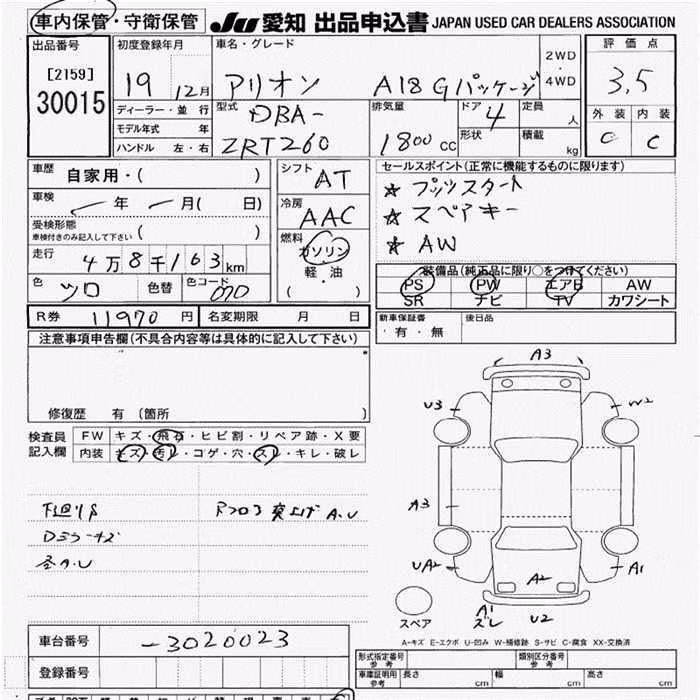 車内保管・守衛保管 JU 愛知 出品申込書 JAPAN USED CAR DEALERS ASSOCIATION
出品番号 初度登録年月 車名・グレード 2WD・4WD 評価点
[2159]
30015
19 12月 アリオン A18 Gパッケージ 3.5
ディーラー・並行 型式 排気量 ドア 定員 外装 内装
モデル年式 年 DBA- 4 人 C C
ハンドル 左・右 ZRT260 1800cc 形状 積載 kg
車歴 自家用・( ) シフト AT セールスポイント(正常に機能するものに限ります)
☆ プッシュスタート
車検 年 月( 日) 冷房 AAC ☆ スペアキー
受検形態
車検付きのみ記入して下さい ( ) 燃料 ガソリン ☆ AW
走行 4万8千163km 軽・油 装備品(純正品に限り○をつけてください)
( ・ ) PS PW エアB AW
色 シロ 色替 色コード 070 SR ナビ TV カワシート
R券 11970円 名変期限 月 日 新車保証書 後日品
有・無
注意事項申告欄(不具合内容等は具体的に記入して下さい)
修復歴 有(箇所
検査員 FW キズ・飛石・ヒビ割・リペア跡・X要
記入欄 内装 キズ・汚レ・コゲ・穴・スレ・キレ・破レ
A3
U3 W2
A3
UA2 A2 A1
A1
ズレ U2
下廻りS Rフロア突上げ A.U
Dミラーキズ
全A.U
スペア
A-キズ E-エクボ U-凹み W-補修跡 S-サビ C-腐食 XX-交換済
車台番号 -3020023
形式指定番号 参考 類別区分番号 参考
登録番号 車庫証明用 参考 長さ cm 幅 cm 高さ cm